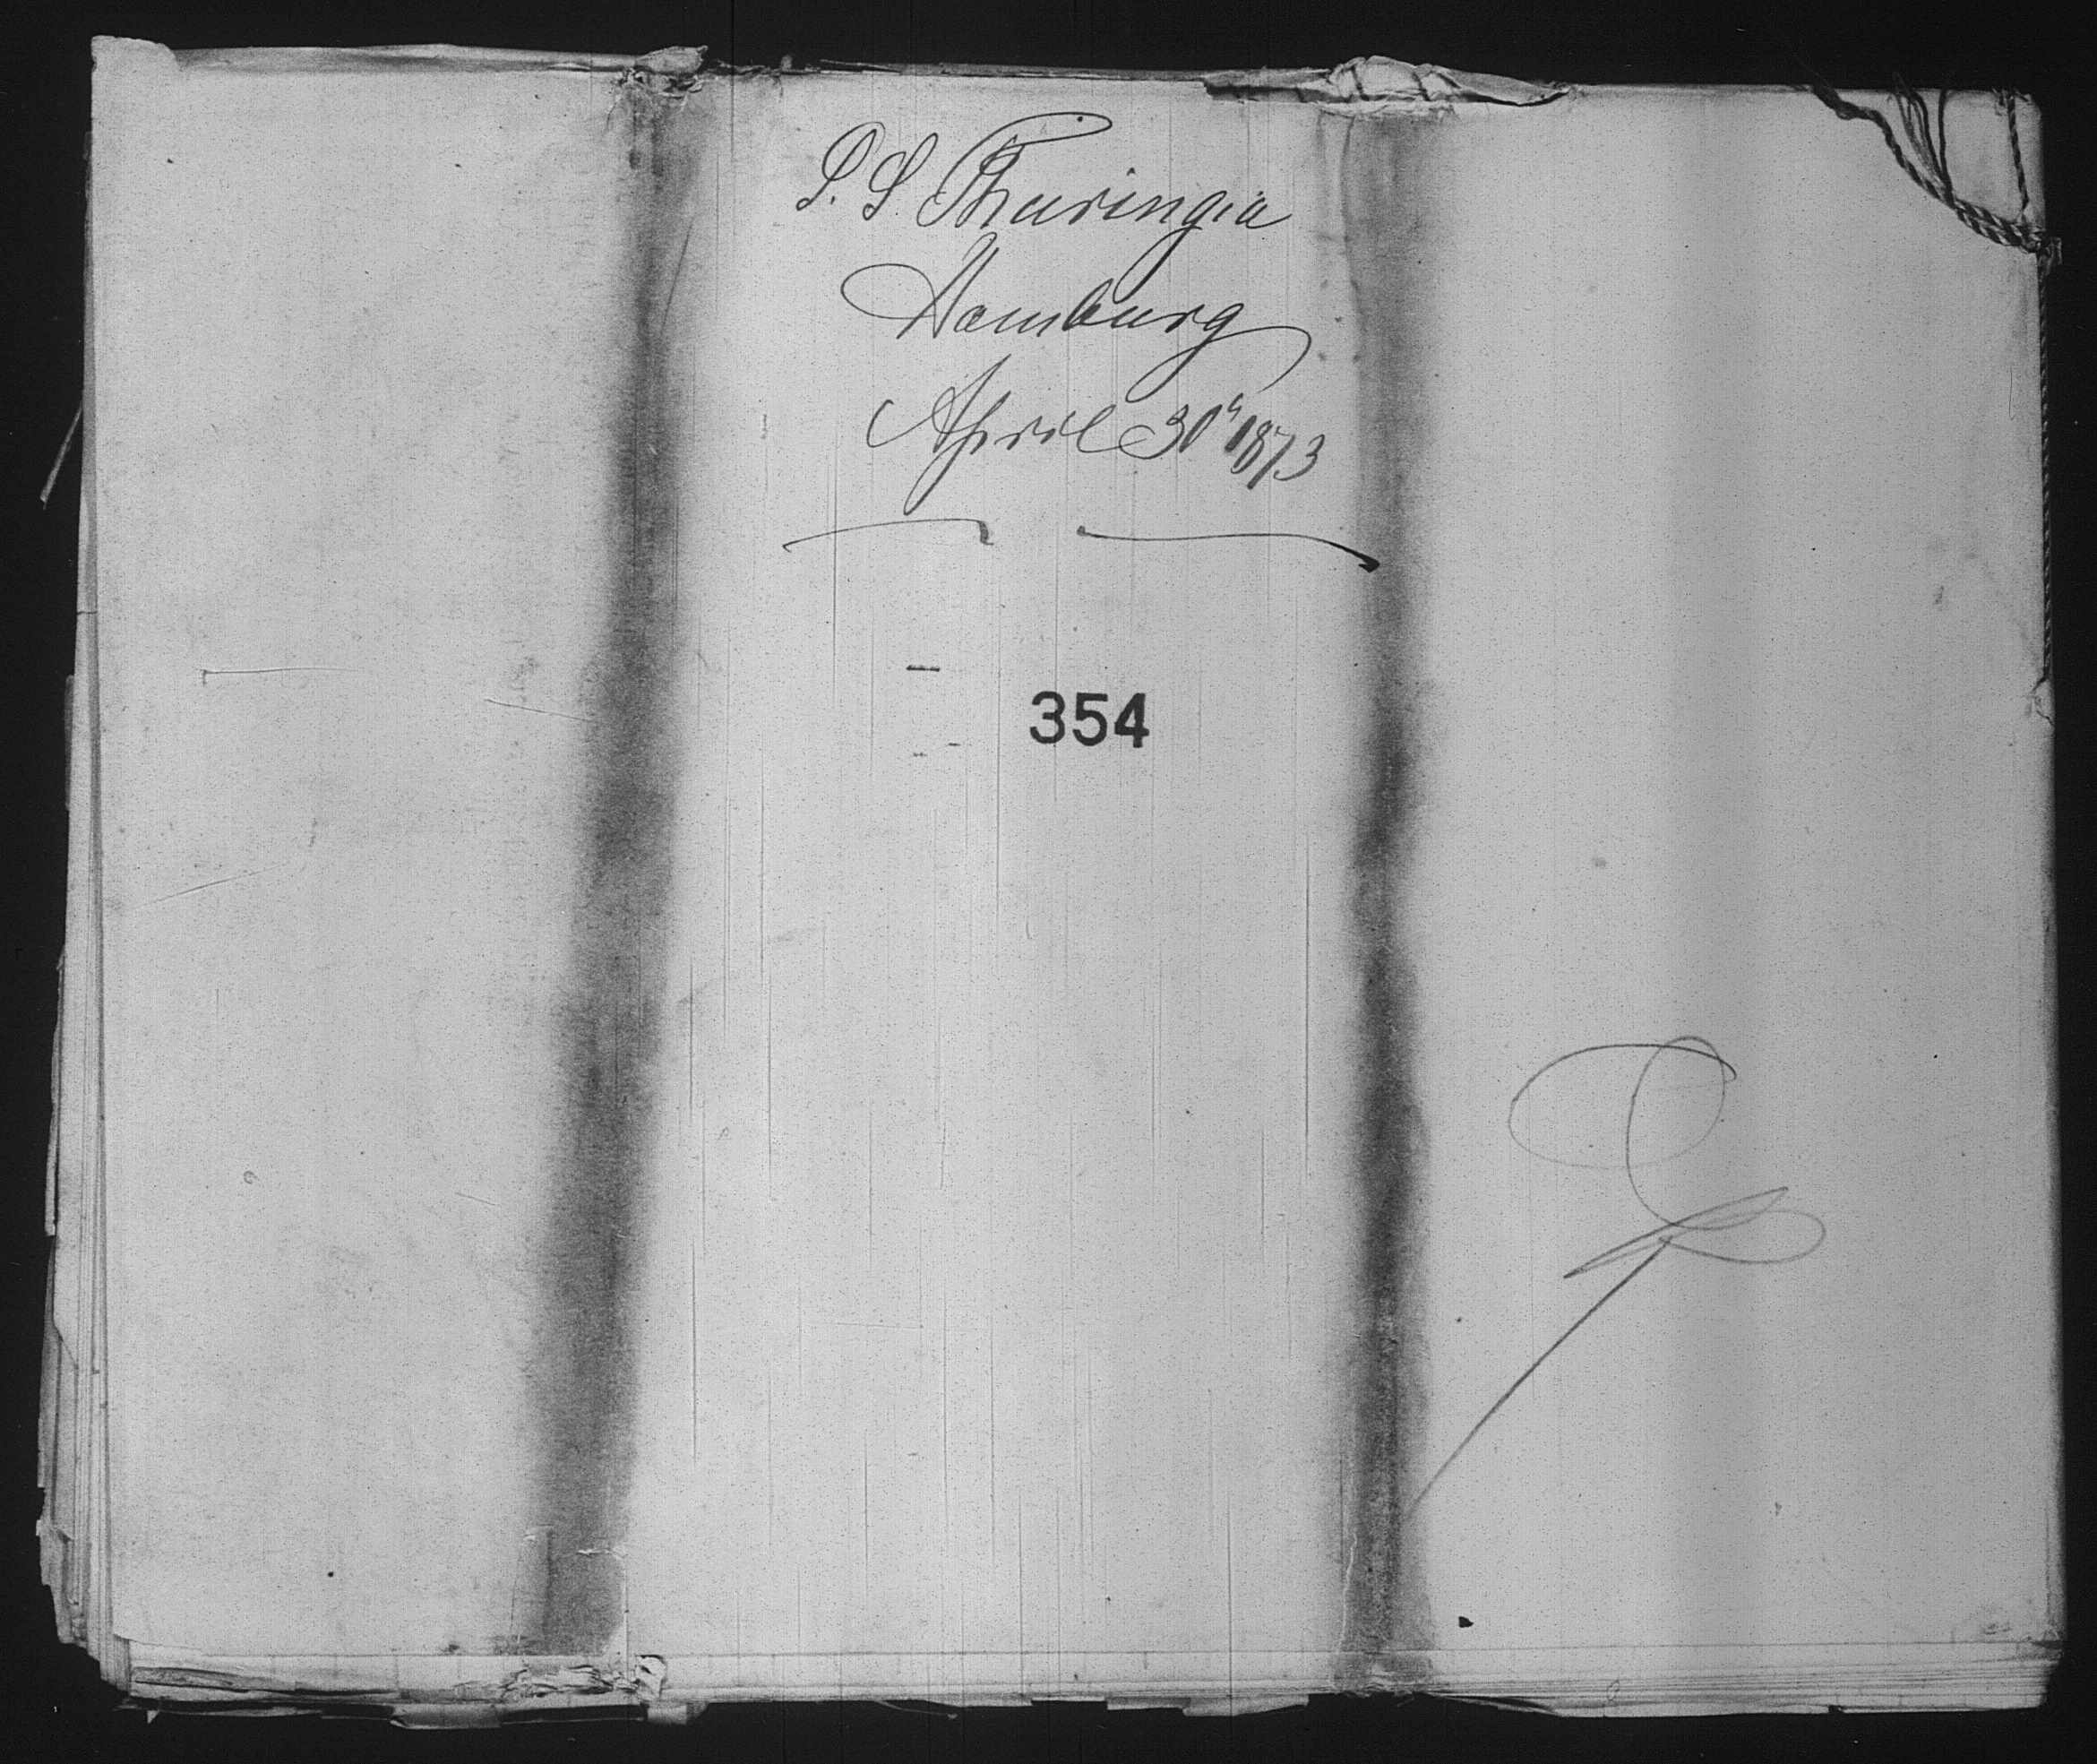 S. S. Thuringia
Hamburg
April 30" 1873
354